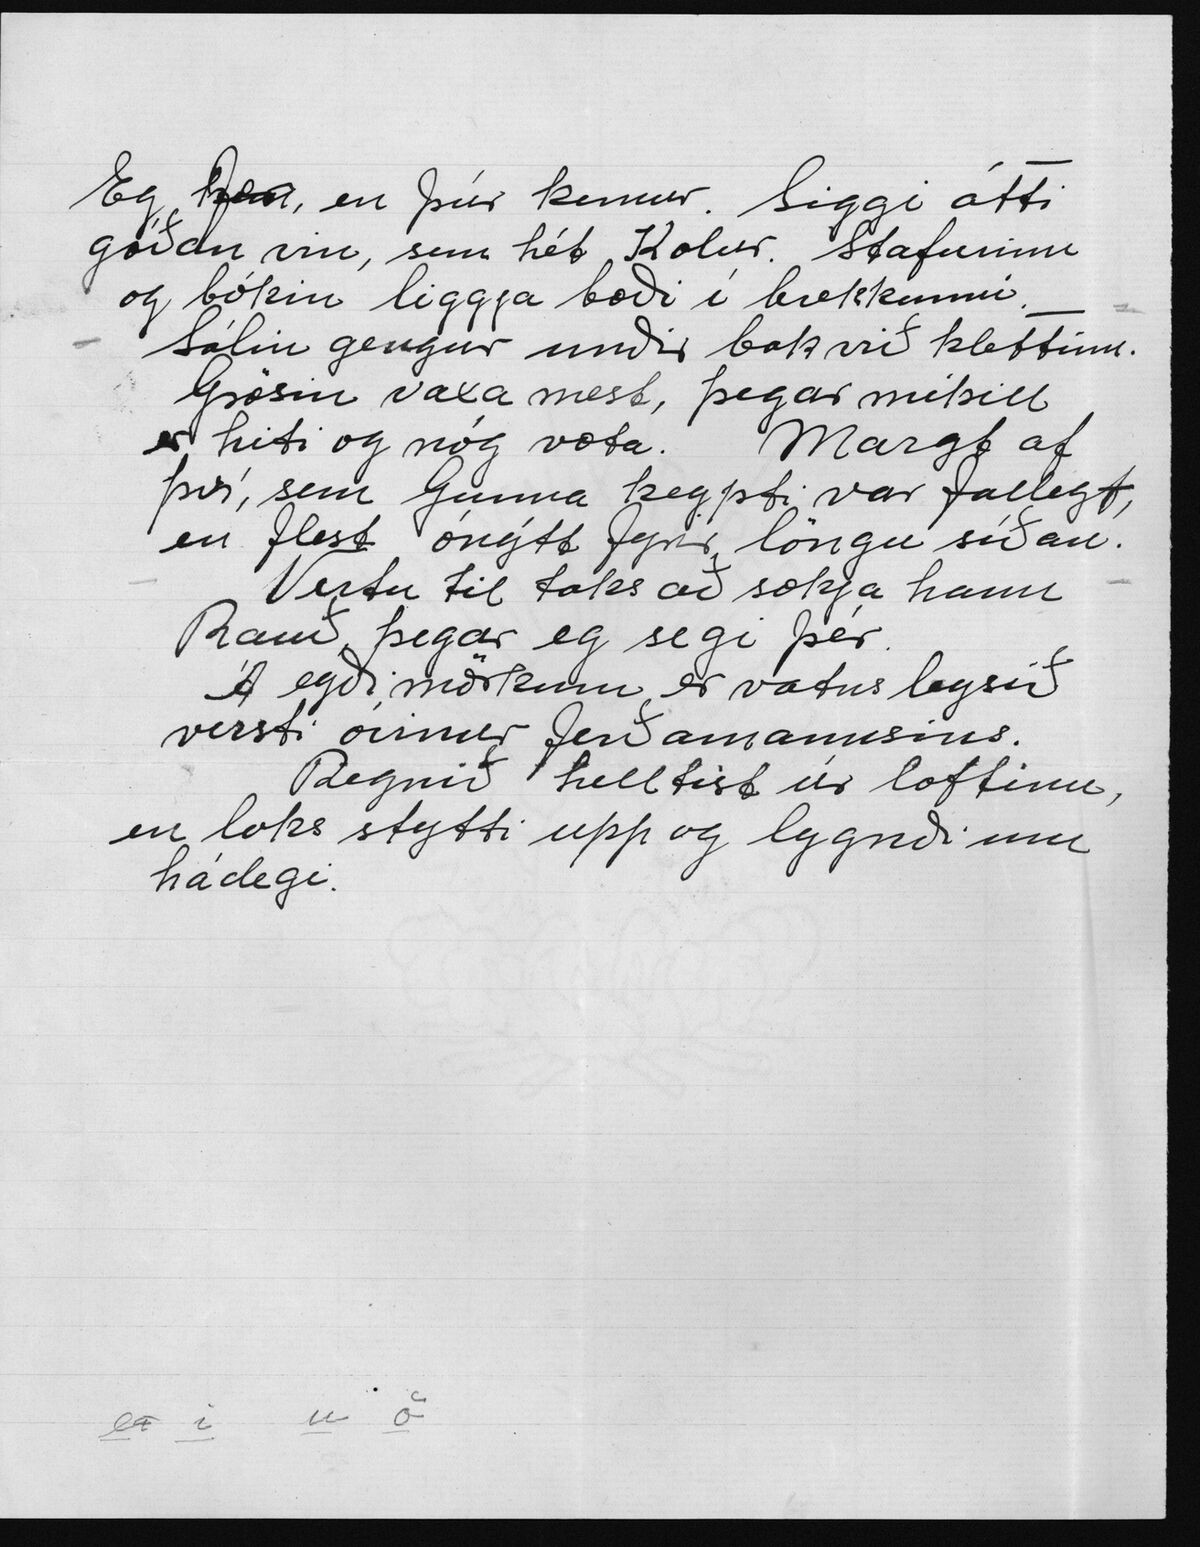 Eg fer, en þúr kemur. Siggi átti
góðan vin, sem hét Kolur. Stafurinn
og bókin liggja bæði í brekkunni.
Sólin gengur undir bak við klettinn.
Grösin vaxa mest, þegar mikill
er hiti og nóg væta. Margt af
því, sem Gunna keypti var fallegt,
en flest ónýtt fyrir löngu síðan.
Vertu til taks að sækja hann
Rauð, þegar eg segi þér.
Á eyðimörkum er vatnsleysið
versti óvinur ferðamannsins.
Regnið helltist úr loftinu,
en loks stytti upp og lygndi um
hádegi.
i u ö